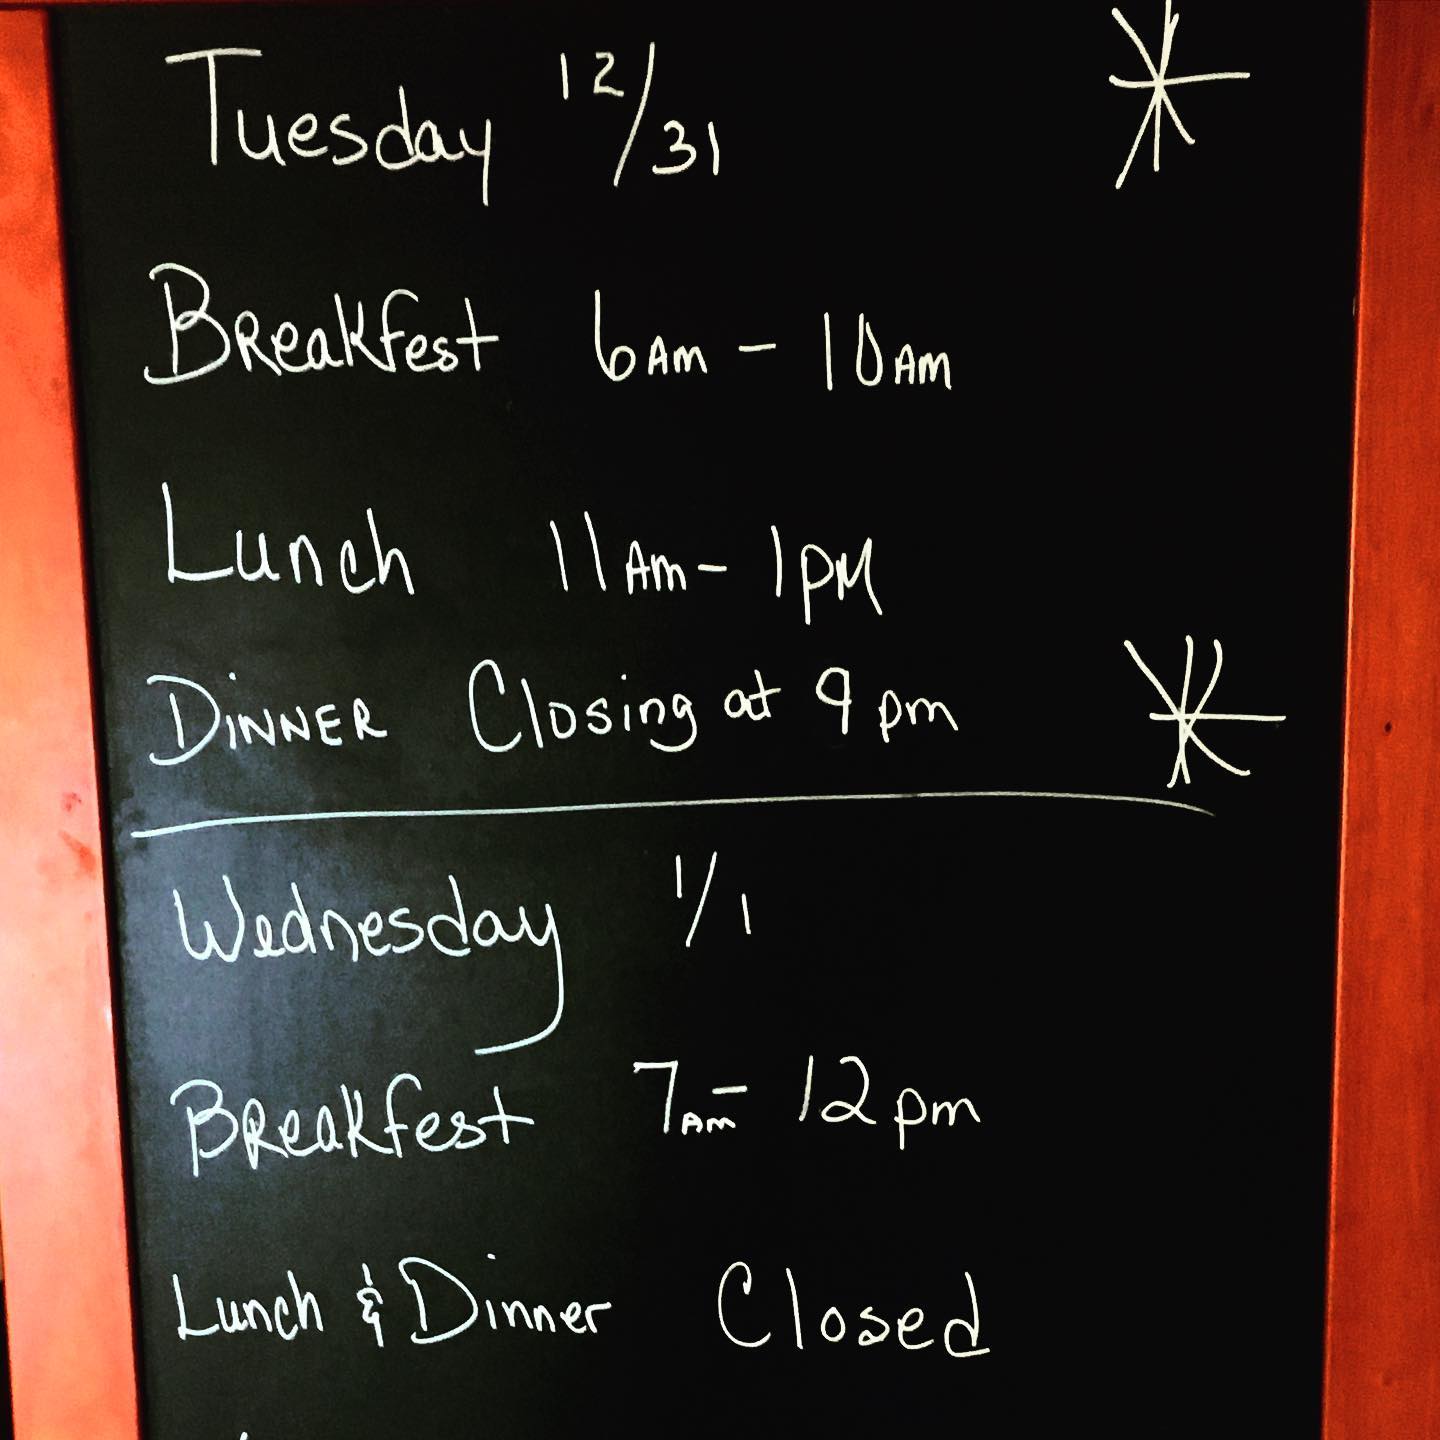 Tuesday 12/31
Breakfest 6AM - 10AM
Lunch 11AM - 1PM
DINNER Closing at 9pm
Wednesday 1/1
Breakfest 7AM - 12pm
Lunch & Dinner Closed